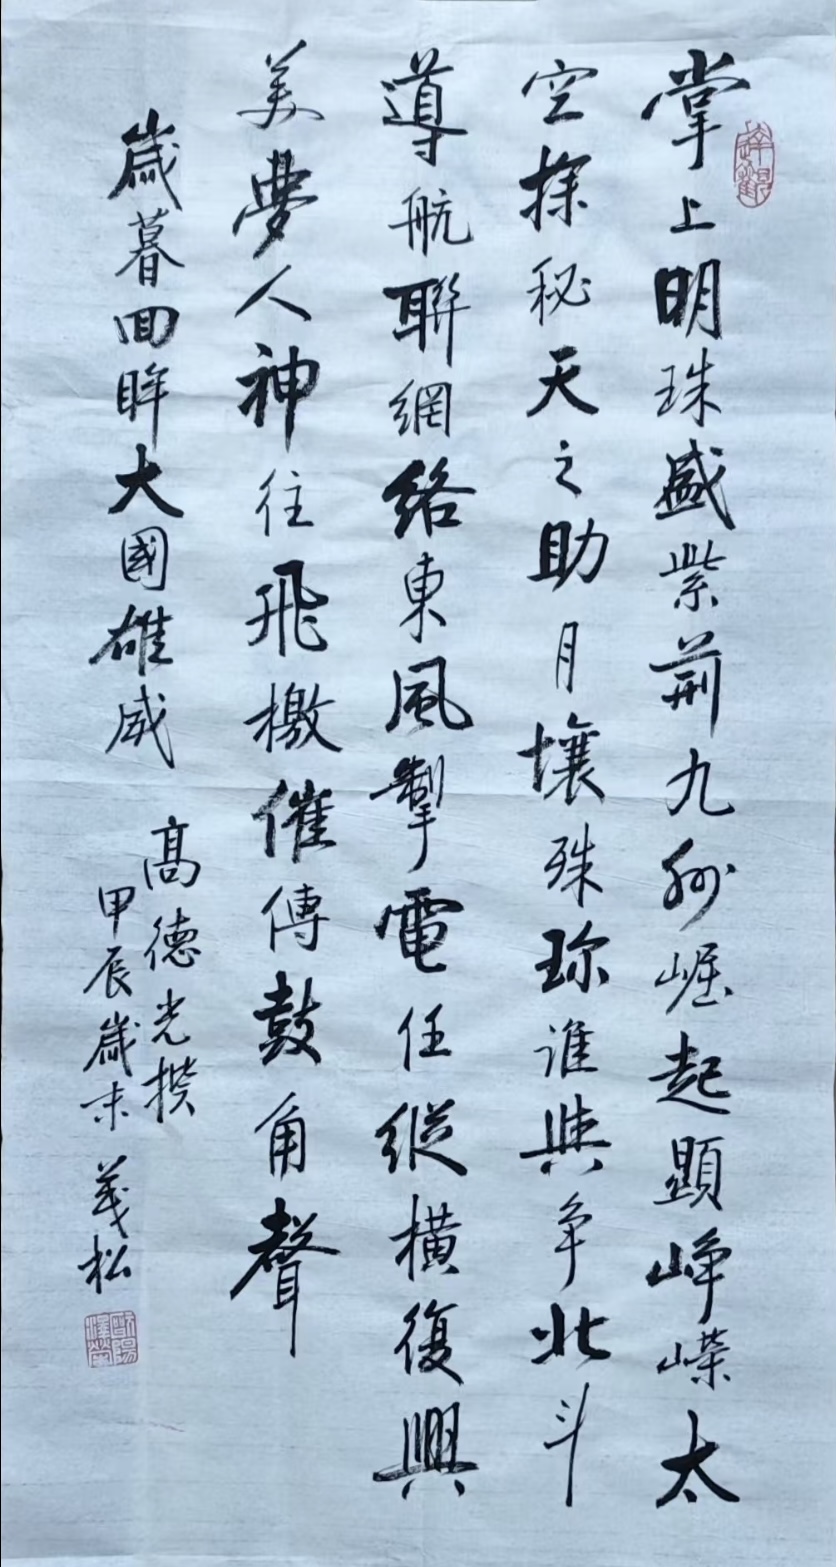 掌上明珠盛紫荊九州崛起顯崢嶸太
空探秘天之助月壤殊珍誰與争北斗
導航聯網絡東風掣電任縱橫復興
美夢人神往飛檄催傳鼓角聲
歲暮回眸大國雄威
高德光撰
甲辰歲末 義松